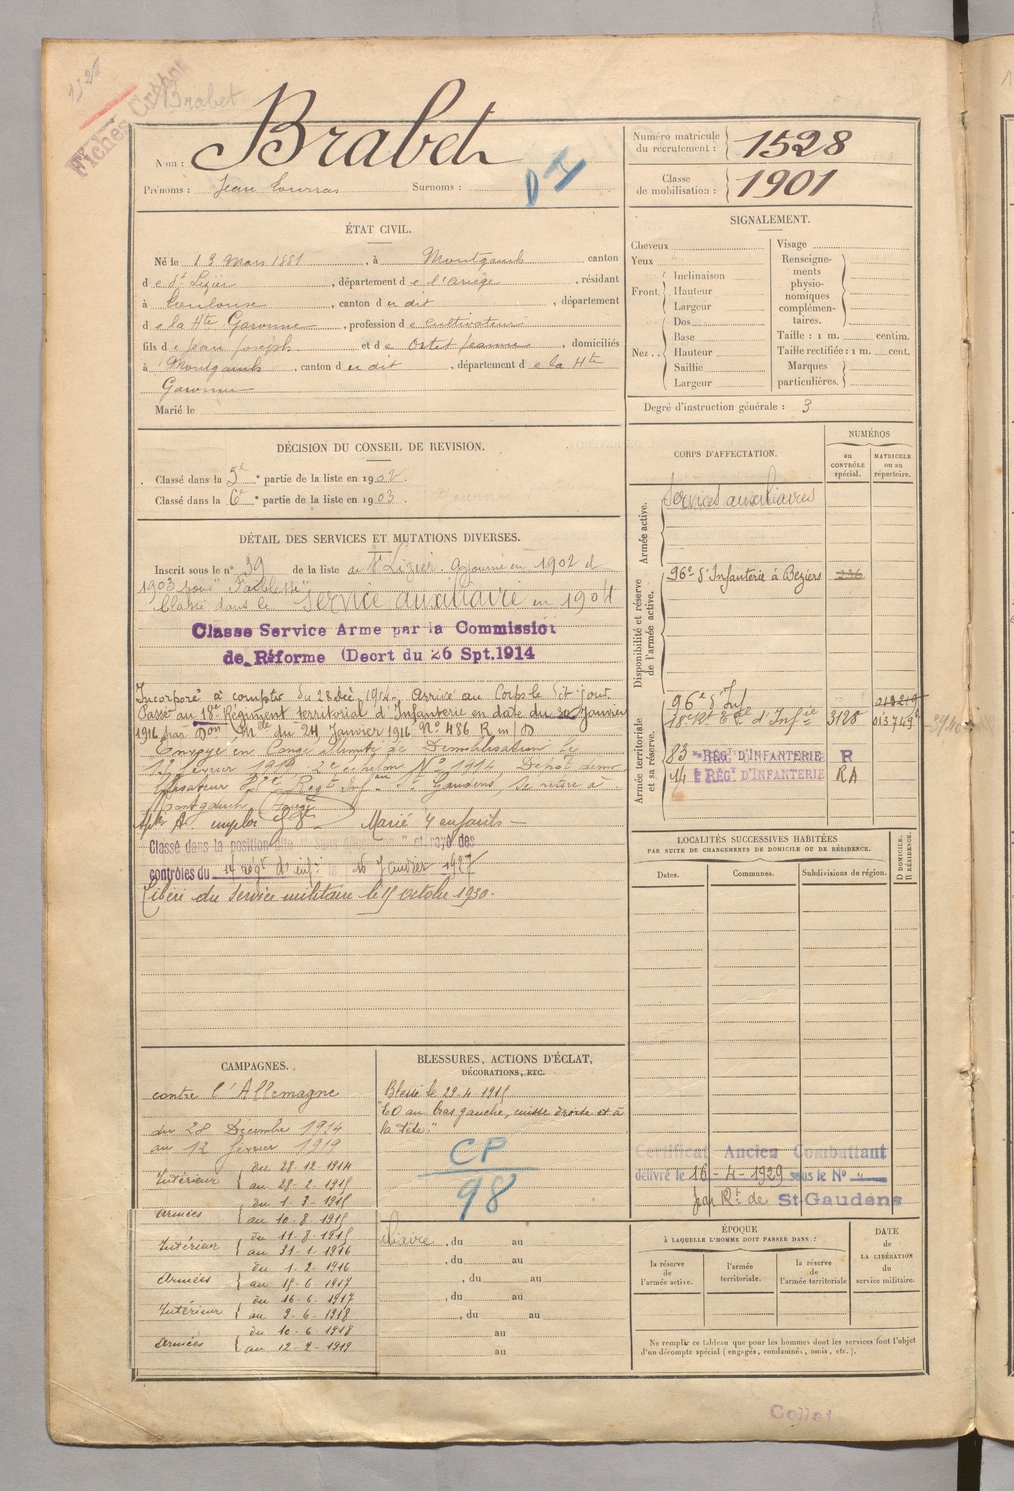 1528
Brabet
Fiches
Nom : Brabet
Prénoms : Jean Surnoms :
Numéro matricule du recrutement : 1528
Classe de mobilisation : 1901
ÉTAT CIVIL.
Né le 13 Mars 1881, à Montgauch canton
de St Lizier, département de l'Ariège, résidant
à Toulouse, canton du dit, département
de la Hte Garonne, profession de cultivateur
fils de Jean Joseph et de Ortet Jeanne, domiciliés
à Montgauch, canton du dit, département de la Hte
Garonne
Marié le
SIGNALEMENT.
Cheveux
Yeux
Front Inclinaison
Hauteur
Largeur
Nez .. Dos
Base
Hauteur
Saillie
Largeur
Visage
Renseignements physionomiques complémentaires.
Taille : 1 m. centim.
Taille rectifiée : 1 m. cent.
Marques particulières.
Degré d'instruction générale : 3
DÉCISION DU CONSEIL DE REVISION.
Classé dans la 5e partie de la liste en 1902.
Classé dans la 6e partie de la liste en 1903.
DÉTAIL DES SERVICES ET MUTATIONS DIVERSES.
Inscrit sous le n° 39 de la liste de St Lizier. Ajourné en 1902 et
1903 pour "Faiblesse"
Classé dans le Service auxiliaire en 1904
Classe Service Arme par la Commission
de Réforme (Decrt du 26 Spt. 1914
Incorporé à compter du 28 déc. 1914. Arrivé au Corps le dit jour.
Passé au 18e Régiment territorial d'Infanterie en date du 30 Janvier
1916 par Don Mlle du 24 Janvier 1916 N° 486 R m/D
Envoyé en Congé illimité de Démobilisation le
12 février 1919 2e échelon N° 1914 Dépôt démo
bilisateur 83e Regt Infie St Gaudens, Se retire à
Montgauch
emploi Marié 4 enfants
Classé dans la position dite et rayé des
contrôles du 14 régt d'inf: le 15 Janvier 1927
Libéré du service militaire le 15 octobre 1930.
CORPS D'AFFECTATION.
NUMÉROS
au CONTRÔLE spécial.
MATRICULE ou au répertoire.
Armée active.
Services auxiliaires
Disponibilité et réserve de l'armée active.
96e d'Infanterie à Beziers
Armée territoriale et sa réserve.
96e d'Inf
18e Rt Ter d'Infie 3128
83 e RÉGt D'INFANTERIE R
14 e RÉGt D'INFANTERIE RA
LOCALITÉS SUCCESSIVES HABITÉES
PAR SUITE DE CHANGEMENTS DE DOMICILE OU DE RÉSIDENCE.
Dates.
Communes.
Subdivisions de région.
D DOMICILE.
R RÉSIDENCE.
CAMPAGNES.
contre l'Allemagne
du 28 Décembre 1914
au 12 février 1919
Intérieur du 28-12-1914
au 28-2-1915
Armées du 1-3-1915
au 10-8-1915
Intérieur du 11-8-1915
au 31-1-1916
Armées du 1-2-1916
au 15-6-1917
Intérieur du 16-6-1917
au 9-6-1918
Armées du 10-6-1918
au 12-2-1919
BLESSURES, ACTIONS D'ÉCLAT,
DÉCORATIONS, ETC.
Blessé le 29-4-1915
"EO au bras gauche, cuisse droite et à
la tête"
CP
98
, du au
, du au
, du au
, du au
, du au
au
au
Certificat Ancien Combattant
délivré le 16-4-1929 sous le N°
par Rt de St-Gaudens
ÉPOQUE
À LAQUELLE L'HOMME DOIT PASSER DANS :
la réserve de l'armée active.
l'armée territoriale.
la réserve de l'armée territoriale
DATE de LA LIBÉRATION du service militaire.
Ne remplir ce tableau que pour les hommes dont les services font l'objet
d'un décompte spécial (engagés, condamnés, omis, etc.).